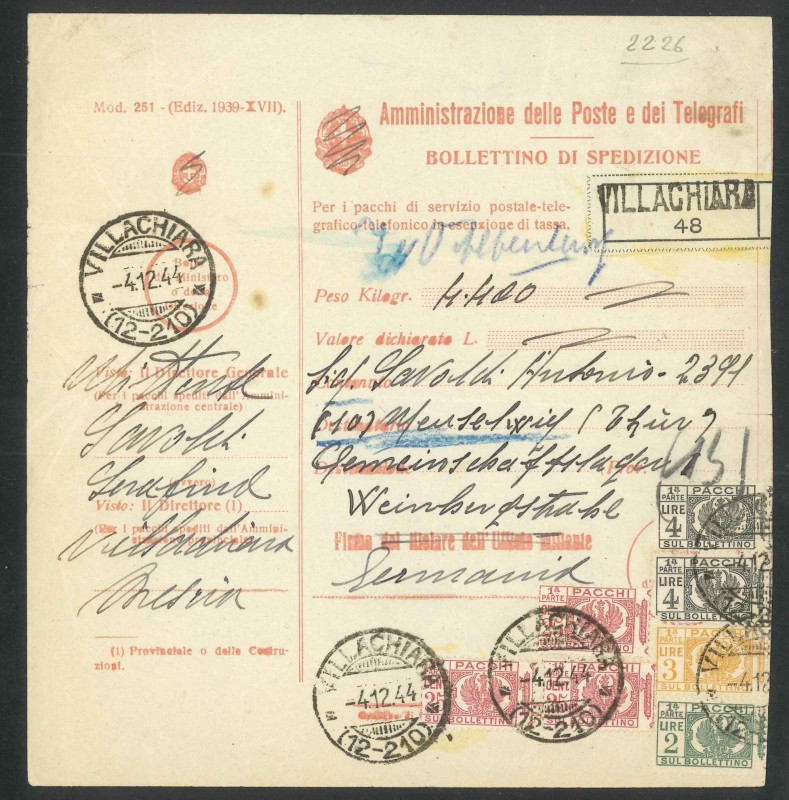 2226
Mod. 251 - (Ediz. 1939-XVII).
Amministrazione delle Poste e dei Telegrafi
BOLLETTINO DI SPEDIZIONE
VILLACHIARA
48
Per i pacchi di servizio postale-tele-
grafico telefonico in esenzione di tassa.
VILLACHIARA
-4.12.44
(12-210)
Peso Kilogr. 4.400
Valore dichiarato L.
Visto: Il Direttore Generale
(Per i pacchi spediti dall'Ammini-
strazione centrale)
Savoldi
Serafino
(ovvero)
Visto: Il Direttore (1)
(Per i pacchi spediti dall'Ammini-
strazione provinciale)
Villachiara
Brescia
(1) Provinciale o delle Costru-
zioni.
Sig. Savoldi Antonio - 2391
(10) Meuselwitz (Thür)
Gemeinschaftslager
Firma del titolare dell'Ufficio mittente
Germania
451
1ª PARTE PACCHI
LIRE 4
SUL BOLLETTINO
1ª PARTE PACCHI
LIRE 4
SUL BOLLETTINO
1ª PARTE
LIRE 3
SUL BOLLETTINO
1ª PARTE PACCHI
LIRE 2
SUL BOLLETTINO
1ª PARTE PACCHI
1ª PARTE PACCHI
CENT 25
SUL BOLLETTINO
CENT 25
SUL BOLLETTINO
VILLACHIARA
-4.12.44
(12-210)
VILLACHIARA
-4.12.44
(12-210)